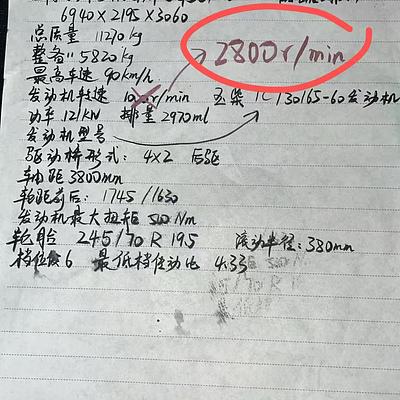 6940×2195×3060
总质量 11270kg
整备〃 5820kg
2800r/min
最高车速 90km/h
发动机转速 r/min 玉柴 130165-60发动机
功率 121KN 排量 2970ml
发动机型号
驱动桥形式: 4×2 后驱
轴距 3800mm
轮距前后: 1745/1630
发动机最大扭矩 500Nm
轮胎 245/70R 19.5 滚动半径:380mm
档位数6 最低档传动比 4.33